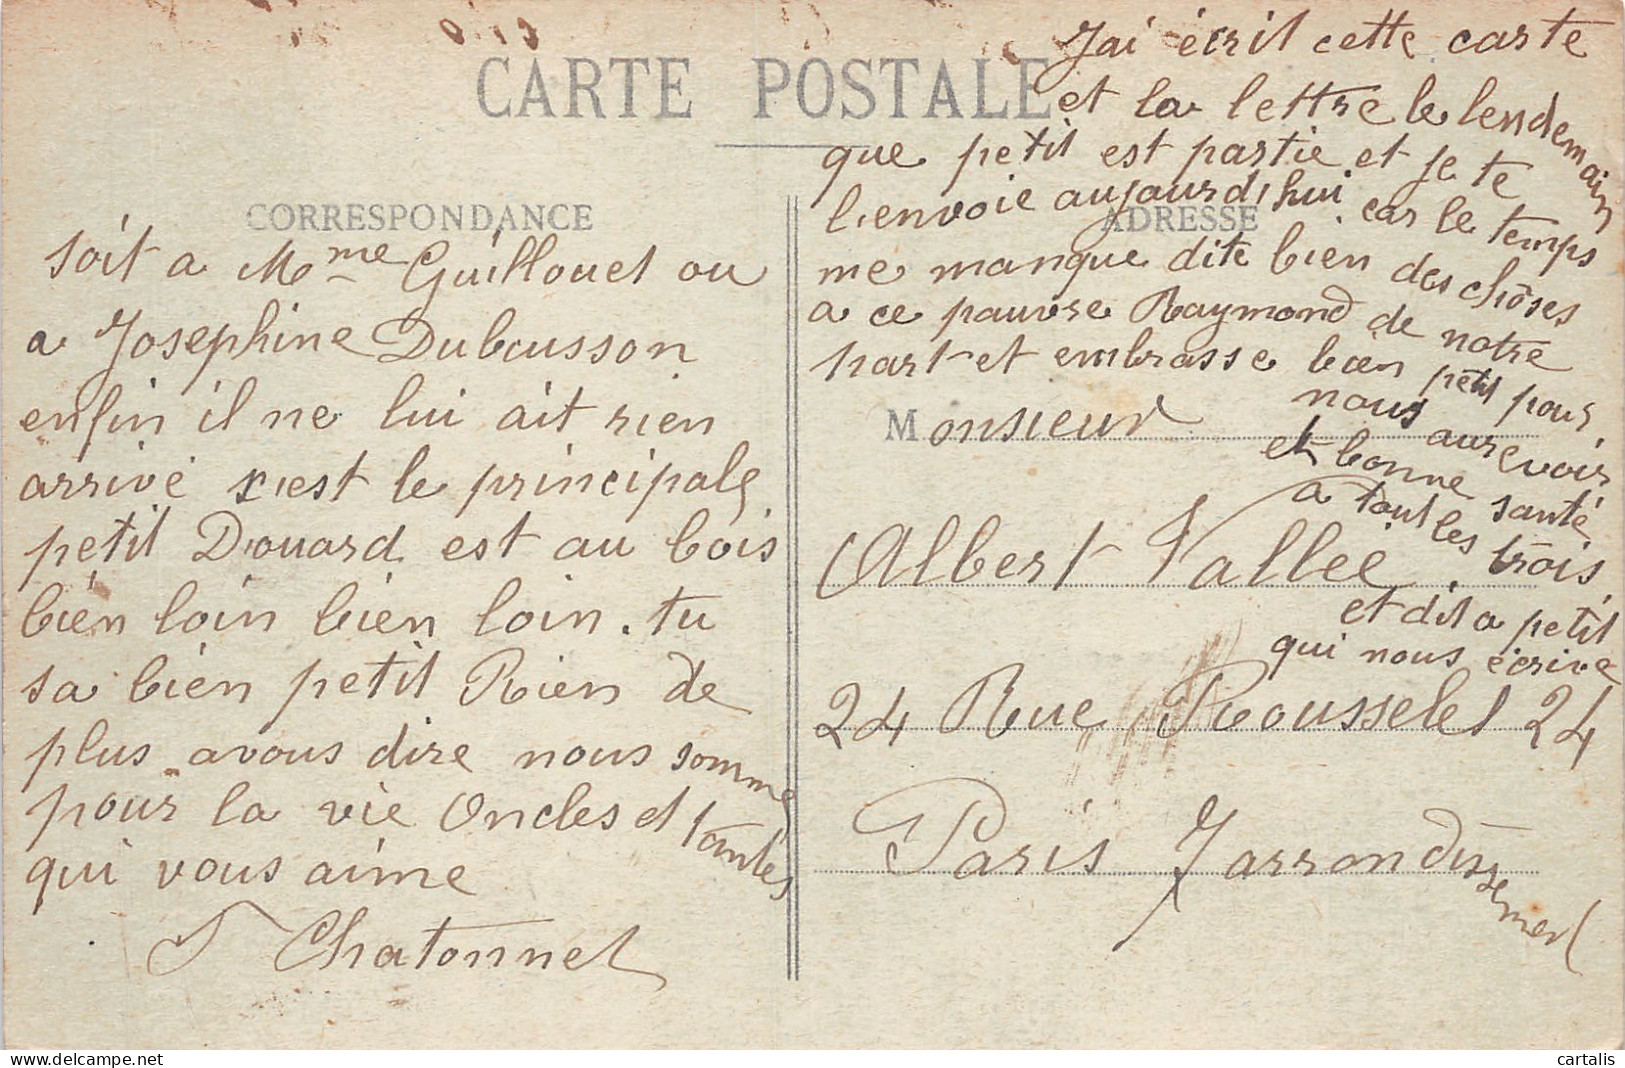 CARTE POSTALE
CORRESPONDANCE
soit a Mme Guillouet ou
a Josephine Dubousson
enfin il ne lui ait rien
arrivé c'est le principale
petit Douard est au bois
bien loin bien loin. tu
sa bien petit Rien de
plus avous dire nous somme
pour la vie Oncles et tantes
qui vous aime
Chatonnet
Jai écrit cette carte
et la lettre le lendemain
que petit est partie et je te
l'envoie aujourd'hui car le temps
me manque dite bien des choses
a ce pauvre Raymond de notre
part et embrasse bien petit pour
nous aurevoir
et bonne santé
a tout les trois
et dit a petit
qui nous écrive
ADRESSE
Monsieur
Albert Vallee
24 Rue Rousselet 24
Paris 7 arrondissement
cartalis